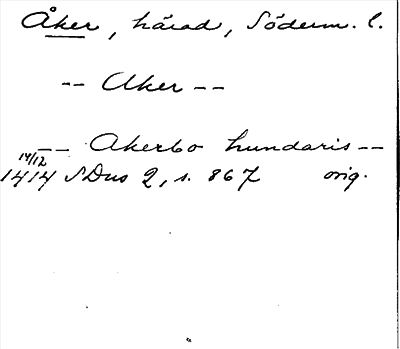 Åker, härad, Söderm. l.
-- Aker --
-- Akerbo hundaris --
14/12
1414 SDns 2, s. 867 orig.